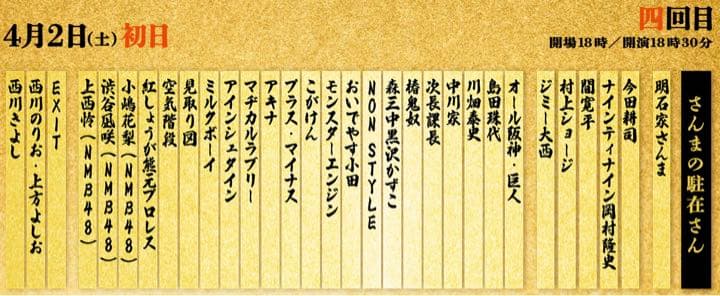 4月2日(土)初日
四回目
開場18時/開演18時30分
さんまの駐在さん
明石家さんま
今田耕司
ナインティナイン岡村隆史
間寛平
村上ショージ
ジミー大西
オール阪神・巨人
島田珠代
川畑泰史
中川家
次長課長
椿鬼奴
森三中黒沢かずこ
NON STYLE
おいでやす小田
モンスターエンジン
こがけん
プラス・マイナス
アキナ
マヂカルラブリー
アインシュタイン
ミルクボーイ
見取り図
空気階段
紅しょうが熊元プロレス
小嶋花梨(NMB48)
渋谷凪咲(NMB48)
上西怜(NMB48)
EXIT
西川のりお・上方よしお
西川きよし